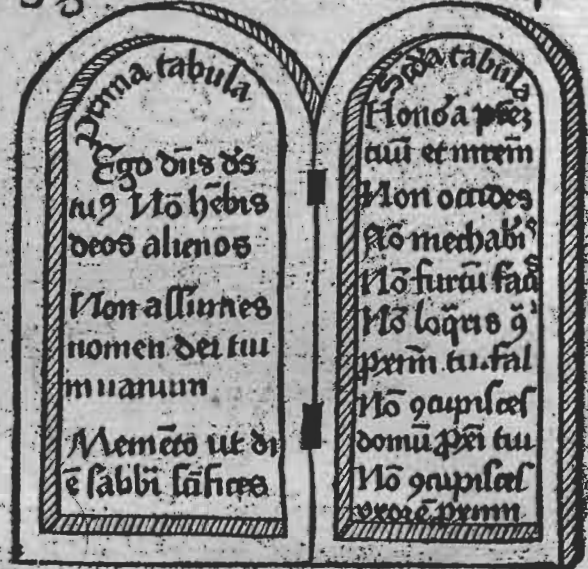 Prima tabula
Ego dn̄s dˀs
tuꝰ Nō hēbis
deos alienos
Non assumes
nomen dei tui
in uanum
Memēto ut di
ē sabbī sc̄ifices
Scd̄a tabula
Honoᷓa pr̄eꝫ
tuū et mr̄em
Non occides
Nō mechabiˢ
Nō furtū faciˢ
Nō loq̄ris ꝯᵃ
pxīm tu. fal
Nō ꝯcupisces
domū p̱xī tui
Nō ꝯcupisces
vxorē pximi